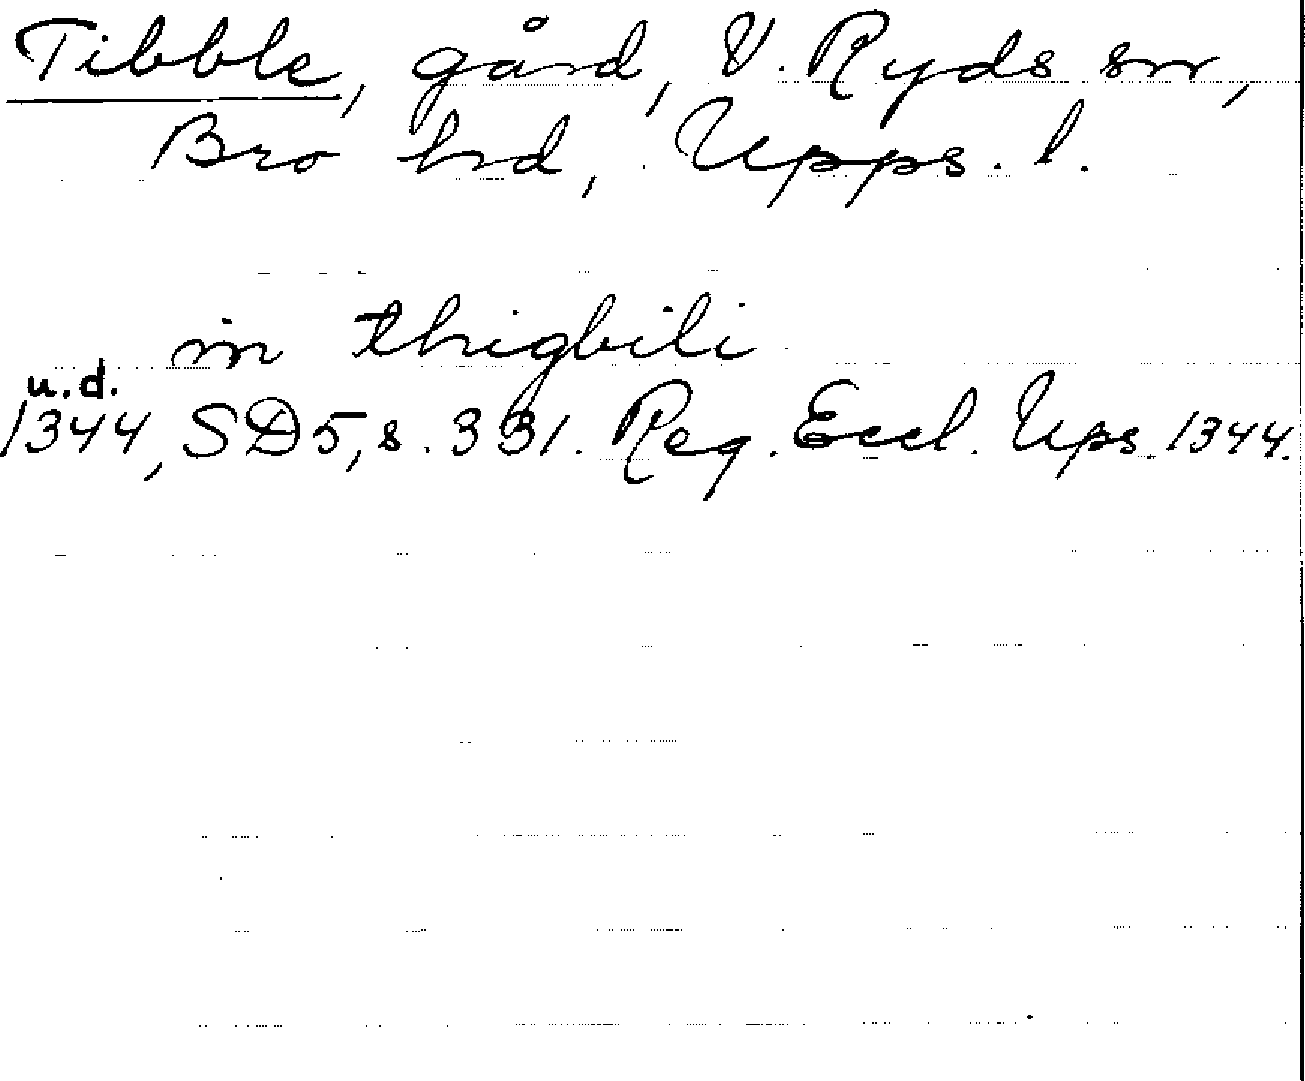 Tibble, gård, V. Ryds sn,
Bro hd, Upps. l.
in thigbili
u.d.
1344, SD 5, s. 331. Reg. Eccl. Ups. 1344.